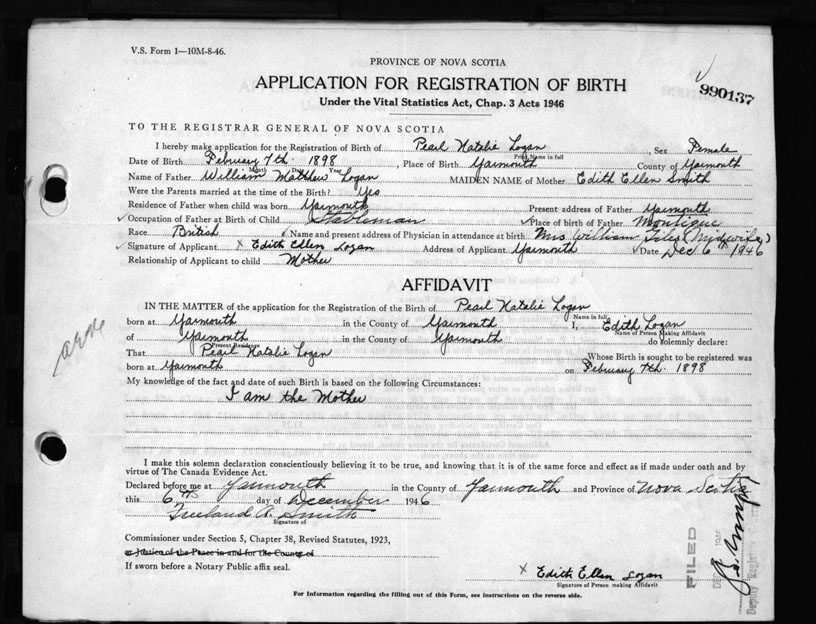 V.S. Form 1—10M-8-46.
PROVINCE OF NOVA SCOTIA
APPLICATION FOR REGISTRATION OF BIRTH
990137
Under the Vital Statistics Act, Chap. 3 Acts 1946
TO THE REGISTRAR GENERAL OF NOVA SCOTIA
I hereby make application for the Registration of Birth of Pearl Natalie Logan, Sex Female
Print Name in full
Date of Birth February 7th. 1898, Place of Birth Yarmouth County of Yarmouth
Month Day Year
Name of Father William Mathew Logan MAIDEN NAME of Mother Edith Ellen Smith
Were the Parents married at the time of the Birth? Yes
Residence of Father when child was born Yarmouth Present address of Father Yarmouth
Occupation of Father at Birth of Child Stableman Place of birth of Father
Race British Name and present address of Physician in attendance at birth Mrs William (Midwife)
Signature of Applicant x Edith Ellen Logan Address of Applicant Yarmouth Date Dec 6th 1946
Relationship of Applicant to child Mother
AFFIDAVIT
IN THE MATTER of the application for the Registration of the Birth of Pearl Natalie Logan
Name in full
born at Yarmouth in the County of Yarmouth I, Edith Logan
Name of Person Making Affidavit
of Yarmouth in the County of Yarmouth do solemnly declare:
Present Residence
That Pearl Natalie Logan Whose Birth is sought to be registered was
born at Yarmouth on February 7th. 1898
My knowledge of the fact and date of such Birth is based on the following Circumstances:
I am the Mother
I make this solemn declaration conscientiously believing it to be true, and knowing that it is of the same force and effect as if made under oath and by
virtue of The Canada Evidence Act.
Declared before me at Yarmouth in the County of Yarmouth and Province of Nova Scotia
this 6th day of December 1946
Freeland A. Smith
Signature of
Commissioner under Section 5, Chapter 38, Revised Statutes, 1923,
or Justice of the Peace in and for the County of
If sworn before a Notary Public affix seal.
x Edith Ellen Logan
Signature of Person making Affidavit
FILED
DEC 1946
Deputy Registrar
For Information regarding the filling out of this Form, see instructions on the reverse side.